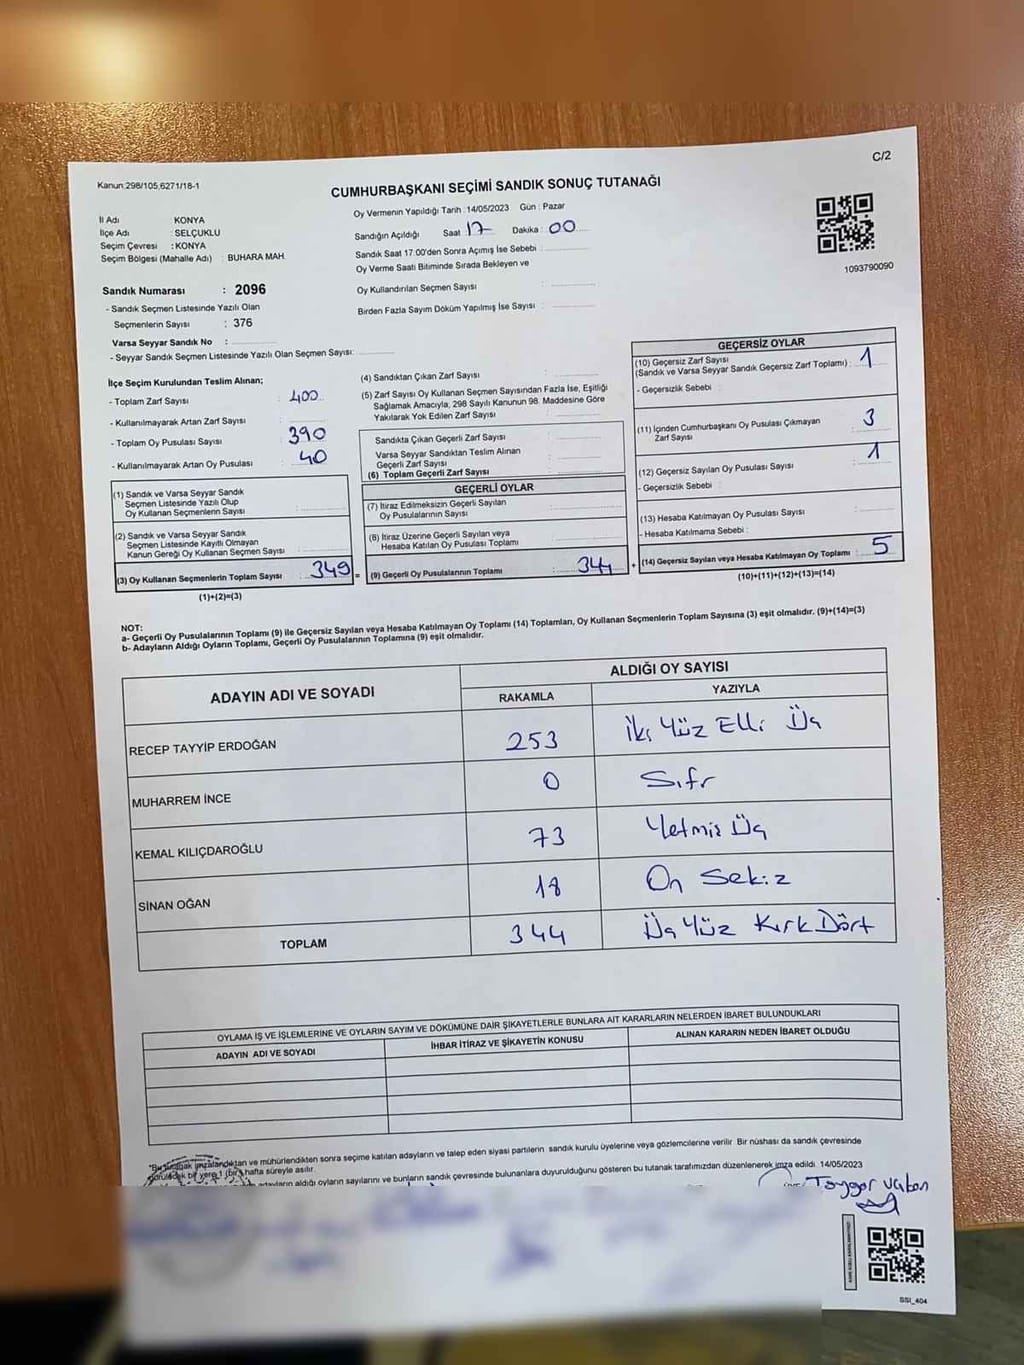 Kanun,298/105,6271/18-1
C/2
CUMHURBAŞKANI SEÇİMİ SANDIK SONUÇ TUTANAĞI
Oy Vermenin Yapıldığı Tarih :14/05/2023 Gün : Pazar
İl Adı : KONYA
İlçe Adı : SELÇUKLU
Seçim Çevresi : KONYA
Seçim Bölgesi (Mahalle Adı) : BUHARA MAH.
Sandığın Açıldığı Saat 17 Dakika : 00
Sandık Saat 17:00'den Sonra Açımış İse Sebebi :
Oy Verme Saati Bitiminde Sırada Bekleyen ve
Oy Kullandırılan Seçmen Sayısı :
Birden Fazla Sayım Döküm Yapılmış İse Sayısı :
1093790090
Sandık Numarası : 2096
- Sandık Seçmen Listesinde Yazılı Olan
Seçmenlerin Sayısı : 376
Varsa Seyyar Sandık No :
- Seyyar Sandık Seçmen Listesinde Yazılı Olan Seçmen Sayısı:
İlçe Seçim Kurulundan Teslim Alınan;
- Toplam Zarf Sayısı : 400
- Kullanılmayarak Artan Zarf Sayısı :
- Toplam Oy Pusulası Sayısı : 390
- Kullanılmayarak Artan Oy Pusulası : 40
(1) Sandık ve Varsa Seyyar Sandık
Seçmen Listesinde Yazılı Olup
Oy Kullanan Seçmenlerin Sayısı :
(2) Sandık ve Varsa Seyyar Sandık
Seçmen Listesinde Kayıtlı Olmayan
Kanun Gereği Oy Kullanan Seçmen Sayısı :
(3) Oy Kullanan Seçmenlerin Toplam Sayısı : 349 =
(1)+(2)=(3)
(4) Sandıktan Çıkan Zarf Sayısı :
(5) Zarf Sayısı Oy Kullanan Seçmen Sayısından Fazla İse, Eşitliği
Sağlamak Amacıyla, 298 Sayılı Kanunun 98. Maddesine Göre
Yakılarak Yok Edilen Zarf Sayısı :
Sandıkta Çıkan Geçerli Zarf Sayısı :
Varsa Seyyar Sandıktan Teslim Alınan
Geçerli Zarf Sayısı :
(6) Toplam Geçerli Zarf Sayısı :
GEÇERLİ OYLAR
(7) İtiraz Edilmeksizin Geçerli Sayılan
Oy Pusulalarının Sayısı :
(8) İtiraz Üzerine Geçerli Sayılan veya
Hesaba Katılan Oy Pusulası Toplamı :
(9) Geçerli Oy Pusulalarının Toplamı : 344 +
GEÇERSİZ OYLAR
(10) Geçersiz Zarf Sayısı
(Sandık ve Varsa Seyyar Sandık Geçersiz Zarf Toplamı) : 1
- Geçersizlik Sebebi :
(11) İçinden Cumhurbaşkanı Oy Pusulası Çıkmayan
Zarf Sayısı : 3
(12) Geçersiz Sayılan Oy Pusulası Sayısı : 1
- Geçersizlik Sebebi :
(13) Hesaba Katılmayan Oy Pusulası Sayısı :
- Hesaba Katılmama Sebebi :
(14) Geçersiz Sayılan veya Hesaba Katılmayan Oy Toplamı : 5
(10)+(11)+(12)+(13)=(14)
NOT:
a- Geçerli Oy Pusulalarının Toplamı (9) ile Geçersiz Sayılan veya Hesaba Katılmayan Oy Toplamı (14) Toplamları, Oy Kullanan Seçmenlerin Toplam Sayısına (3) eşit olmalıdır. (9)+(14)=(3)
b- Adayların Aldığı Oyların Toplamı, Geçerli Oy Pusulalarının Toplamına (9) eşit olmalıdır.
ADAYIN ADI VE SOYADI
ALDIĞI OY SAYISI
RAKAMLA YAZIYLA
RECEP TAYYİP ERDOĞAN 253 İki Yüz Elli Üç
MUHARREM İNCE 0 Sıfr
KEMAL KILIÇDAROĞLU 73 Yetmiş Üç
SİNAN OĞAN 18 On Sekiz
TOPLAM 344 Üç Yüz Kırk Dört
OYLAMA İŞ VE İŞLEMLERİNE VE OYLARIN SAYIM VE DÖKÜMÜNE DAİR ŞİKAYETLERLE BUNLARA AİT KARARLARIN NELERDEN İBARET BULUNDUKLARI
ADAYIN ADI VE SOYADI İHBAR İTİRAZ VE ŞİKAYETİN KONUSU ALINAN KARARIN NEDEN İBARET OLDUĞU
imzalandıktan ve mühürlendikten sonra seçime katılan adayların ve talep eden siyasi partilerin sandık kurulu üyelerine veya gözlemcilerine verilir. Bir nüshası da sandık çevresinde
bir yere 1 (bir) hafta süreyle asılır.
adayların aldığı oyların sayılarını ve bunların sandık çevresinde bulunanlara duyurulduğunu gösteren bu tutanak tarafımızdan düzenlenerek imza edildi. 14/05/2023
SSI_404